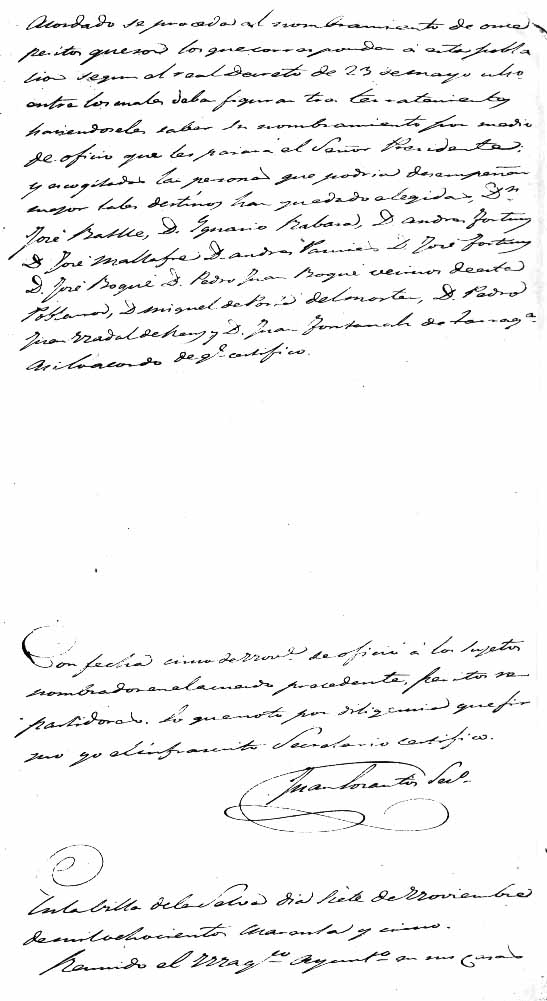 Acordado se proceda al nombramiento de once
peritos que son los que corresponden á esta pobla
cion segun el real decreto de 23 de mayo ulto.
entre los cuales deben figurar tres terratenientes
haciendoseles saber su nombramiento por medio
de oficio que les pasará el Señor Presidente:
y escogitadas las personas que podrian desempeñar
mejor tales destinos han quedado elegidas, Dn.
José Batlle, D. Ygnacio Rabasa, D. Andres Fortuny
D. José Mallafré D. Andres D. José Fortuny
D. José Boqué D. Pedro Juan Boqué vecinos de esta
D. Miguel de del Morta, D. Pedro
Juan Nadal de Reus y D. Juan Fontanals de Tarraga.
Asi lo acordo de qe. certifico.
Con fecha cinco de Nove. se ofició á los sujetos
nombrados en el acuerdo precedente, peritos re
partidores. Lo que noto por diligencia que fir
mo yo el infrascrito Secretario certifico.
Juan Secro.
En la villa de la Selva dia siete de Noviembre
de mil ochocientos cuarenta y cinco.
Reunido el Magco. Ayunto. en sus casas